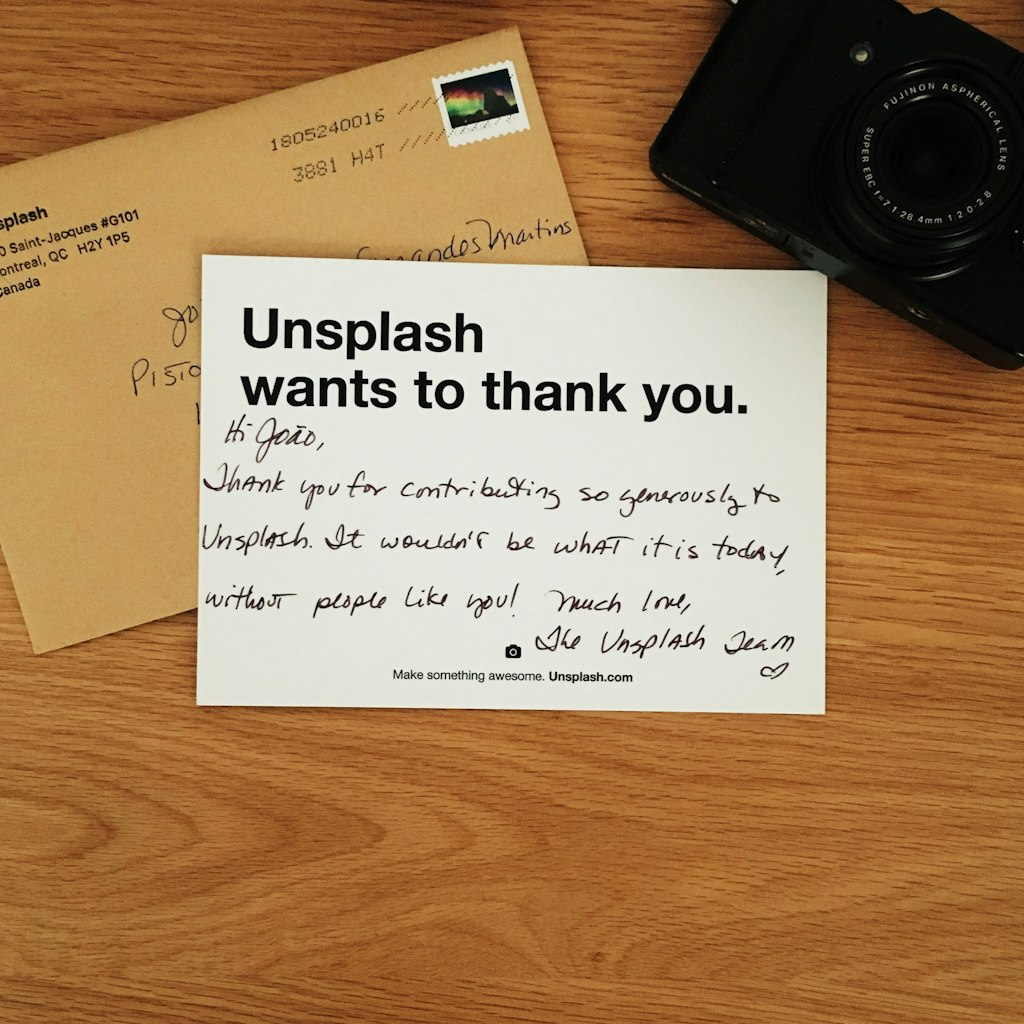 1805240016
3881 H4T
splash
0 Saint-Jacques #G101
ontreal, QC H2Y 1P5
Canada
Martins
Jo
PISTO
Unsplash
wants to thank you.
Hi João,
Thank you for contributing so generously to
Unsplash. It wouldn't be what it is today,
without people like you! Much love,
The Unsplash Team
Make something awesome. Unsplash.com
FUJINON ASPHERICAL LENS
SUPER EBC f=7.1-28.4mm 1:2.0-2.8